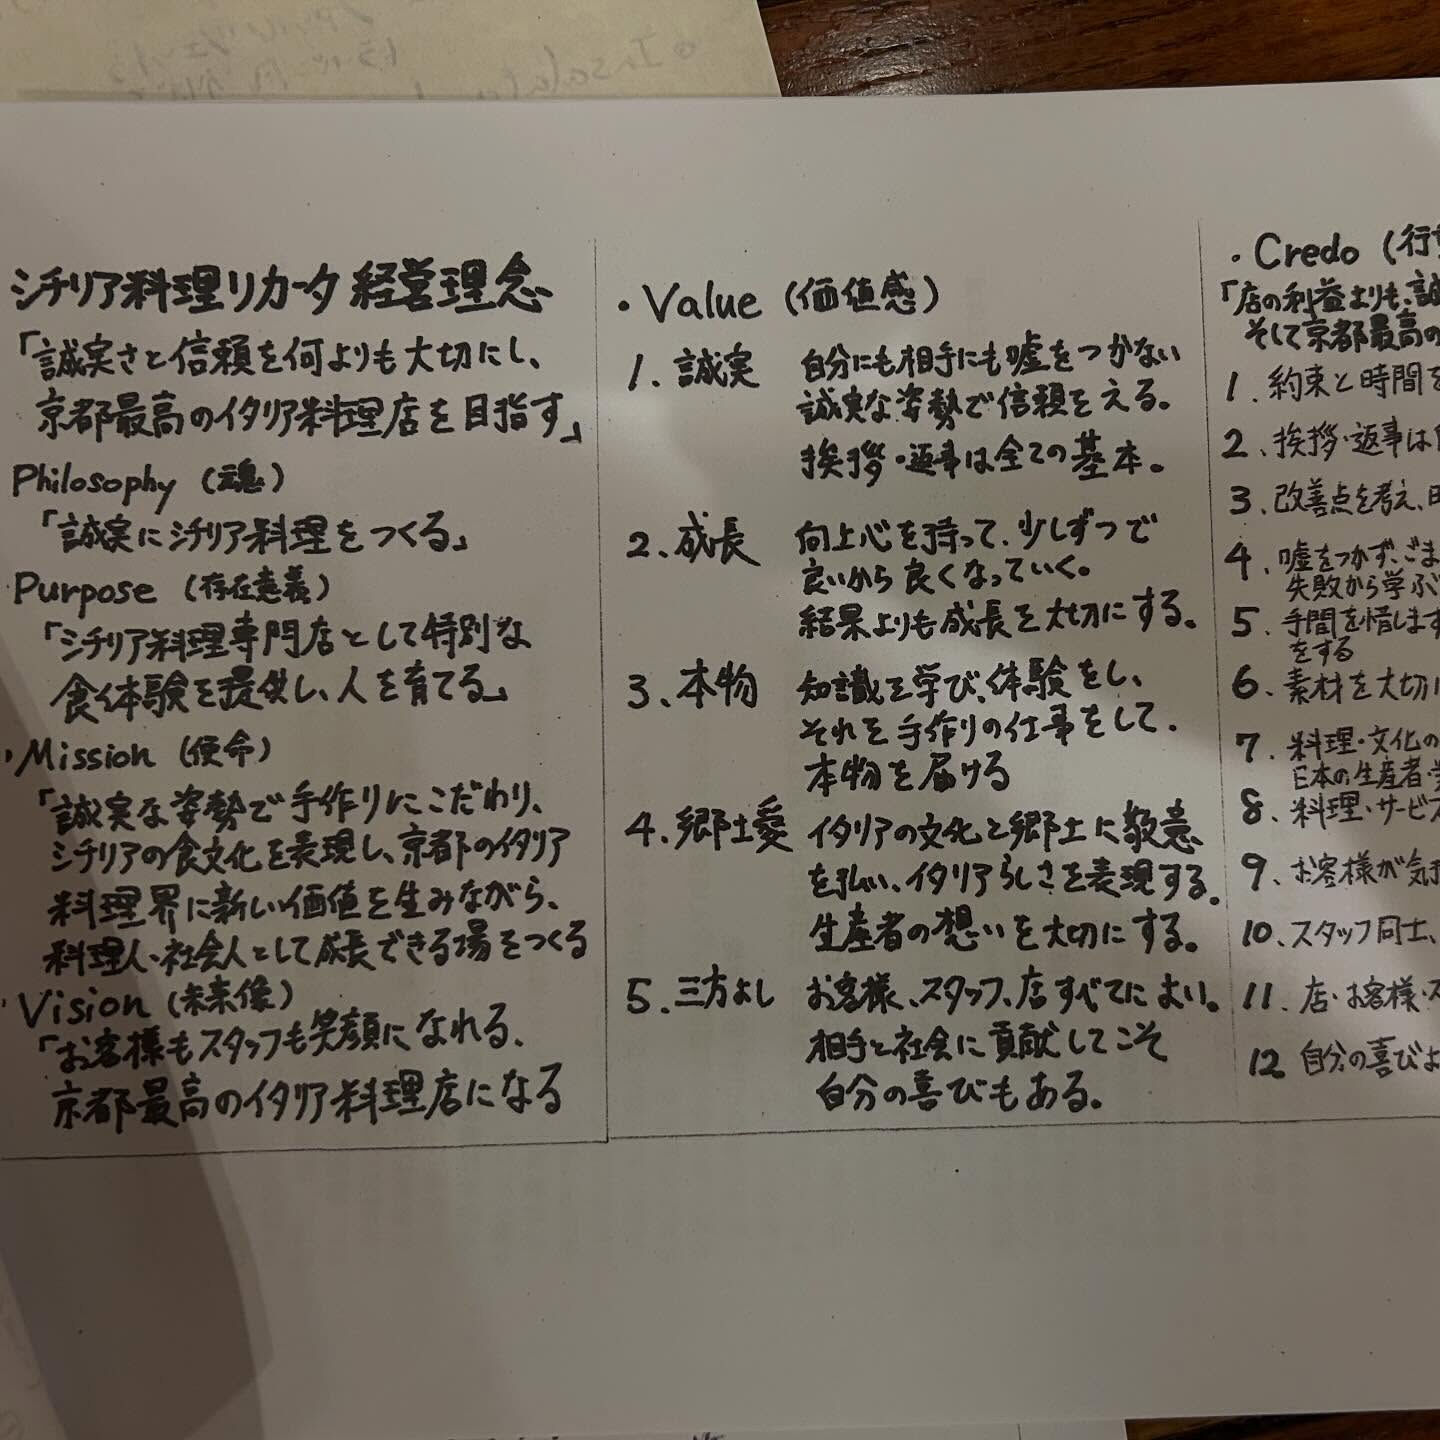 シチリア料理リカータ 経営理念
「誠実さと信頼を何よりも大切にし、
京都最高のイタリア料理店を目指す」
Philosophy (魂)
「誠実にシチリア料理をつくる」
Purpose (存在意義)
「シチリア料理専門店として特別な
食体験を提供し、人を育てる」
・Mission (使命)
「誠実な姿勢で手作りにこだわり、
シチリアの食文化を表現し、京都のイタリア
料理界に新しい価値を生みながら、
料理人・社会人として成長できる場をつくる
・Vision (未来像)
「お客様もスタッフも笑顔になれる、
京都最高のイタリア料理店になる
・Value (価値感)
1. 誠実 自分にも相手にも嘘をつかない
誠実な姿勢で信頼をえる。
挨拶・返事は全ての基本。
2、成長 向上心を持って、少しずつで
良いから良くなっていく。
結果よりも成長を大切にする。
3、本物 知識を学び、体験をし、
それを手作りの仕事をして、
本物を届ける
4. 郷土愛 イタリアの文化と郷土に敬意
を払い、イタリアらしさを表現する。
生産者の想いを大切にする。
5. 三方よし お客様、スタッフ、店すべてによい。
相手と社会に貢献してこそ
自分の喜びもある。
・Credo (行
「店の利益よりも、誠
そして京都最高の
1. 約束と時間を
2、挨拶・返事は
3、改善点を考え、
4、嘘をつかず、ごま
失敗から学ぶ
5. 手間を惜します
をする
6、素材を大切に
7. 料理・文化の
日本の生産者・
8. 料理・サービス
9、お客様が気持
10、スタッフ同士、
11. 店・お客様・ス
12 自分の喜びよ